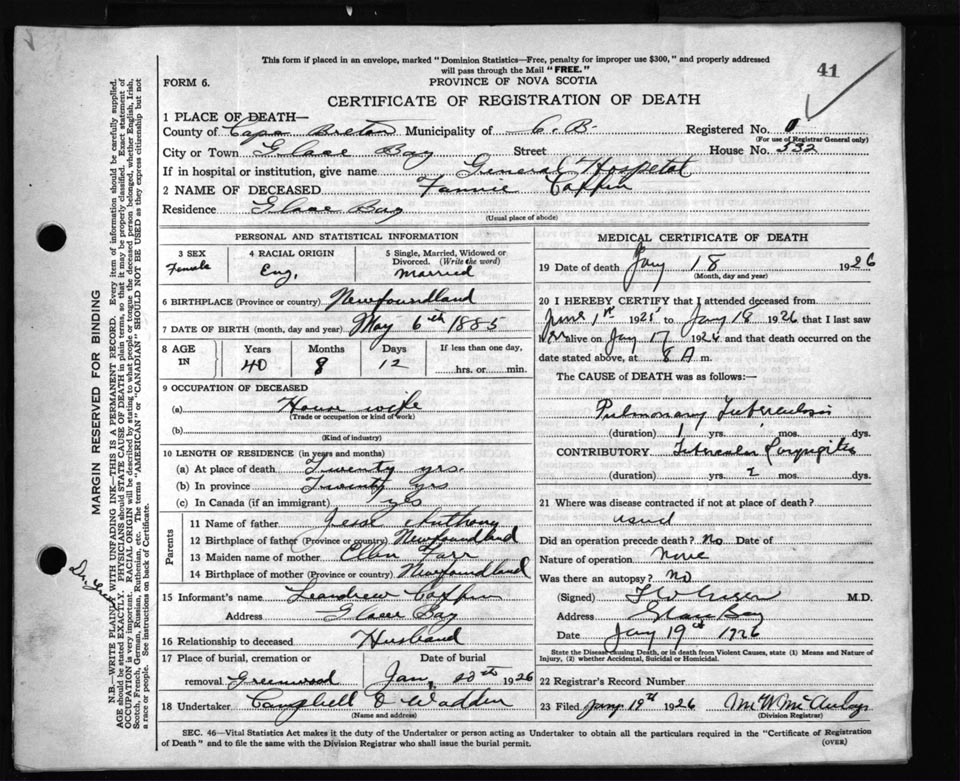 This form if placed in an envelope, marked "Dominion Statistics—Free, penalty for improper use $300," and properly addressed
will pass through the Mail "FREE."
41
FORM 6.
PROVINCE OF NOVA SCOTIA
CERTIFICATE OF REGISTRATION OF DEATH
1 PLACE OF DEATH—
County of Cape Breton Municipality of C.B. Registered No.
(For use of Registrar General only)
City or Town Glace Bay Street House No. 532
If in hospital or institution, give name General Hospital
2 NAME OF DECEASED Fannie Caffin
Residence Glace Bay
(Usual place of abode)
PERSONAL AND STATISTICAL INFORMATION
3 SEX 4 RACIAL ORIGIN 5 Single, Married, Widowed or
Divorced. (Write the word)
Female Eng. Married
6 BIRTHPLACE (Province or country) Newfoundland
7 DATE OF BIRTH (month, day and year) May 6th 1885
8 AGE IN Years Months Days If less than one day,
40 8 12 hrs. or min.
9 OCCUPATION OF DECEASED
(a) House wife
(Trade or occupation or kind of work)
(b)
(Kind of industry)
10 LENGTH OF RESIDENCE (in years and months)
(a) At place of death Twenty yrs.
(b) In province Twenty yrs
(c) In Canada (if an immigrant) yes
Parents
11 Name of father Jesse Anthony
12 Birthplace of father (Province or country) Newfoundland
13 Maiden name of mother Ellen Farr
14 Birthplace of mother (Province or country) Newfoundland
15 Informant's name Leandrew Caffin
Address Glace Bay
16 Relationship to deceased Husband
17 Place of burial, cremation or Date of burial
removal Greenwood Jan, 20th 1926
18 Undertaker Campbell & Wadden
(Name and address)
MEDICAL CERTIFICATE OF DEATH
19 Date of death Jany 18 1926
(Month, day and year)
20 I HEREBY CERTIFY that I attended deceased from
June 1st 1925 to Jany 18 1926 that I last saw
her alive on Jany 17 1926 and that death occurred on the
date stated above, at 8 A m.
The CAUSE of DEATH was as follows:—
Pulmonary Tuberculosis
(duration) 1 yrs. mos. dys.
CONTRIBUTORY Tubercular Laryngitis
(duration) yrs. mos. dys.
21 Where was disease contracted if not at place of death?
Did an operation precede death? No Date of
Nature of operation None
Was there an autopsy? No
(Signed) M.D.
Address Glace Bay
Date Jany 19th 1926
State the Disease causing Death, or in death from Violent Causes, state (1) Means and Nature of
Injury, (2) whether Accidental, Suicidal or Homicidal.
22 Registrar's Record Number
23 Filed Jany 19th 1926 M W McAulay
(Division Registrar)
SEC. 46—Vital Statistics Act makes it the duty of the Undertaker or person acting as Undertaker to obtain all the particulars required in the "Certificate of Registration
of Death" and to file the same with the Division Registrar who shall issue the burial permit.
(OVER)
MARGIN RESERVED FOR BINDING
N.B.—WRITE PLAINLY WITH UNFADING INK—THIS IS A PERMANENT RECORD. Every item of information should be carefully supplied.
AGE should be stated EXACTLY. PHYSICIANS should STATE CAUSE OF DEATH in plain terms, so that it may be properly classified. Exact statement of
OCCUPATION is very important. RACIAL ORIGIN will be described by stating to what people or tongue the deceased person belonged, whether English, Irish,
Scotch, French, German, Russian, Ruthenian, etc. The terms "AMERICAN" or "CANADIAN" SHOULD NOT BE USED as they express citizenship but not
a race or people. See instructions on back of Certificate.